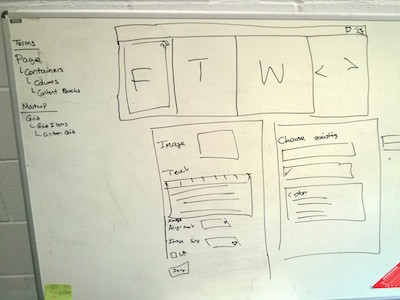 Terms
Page
Containers
Columns
Content Blocks
Markup
Grid
Grid Items
F
T
W
< >
Image
Text
Image
Alignment
Image Size
Save
Choose existing
Color